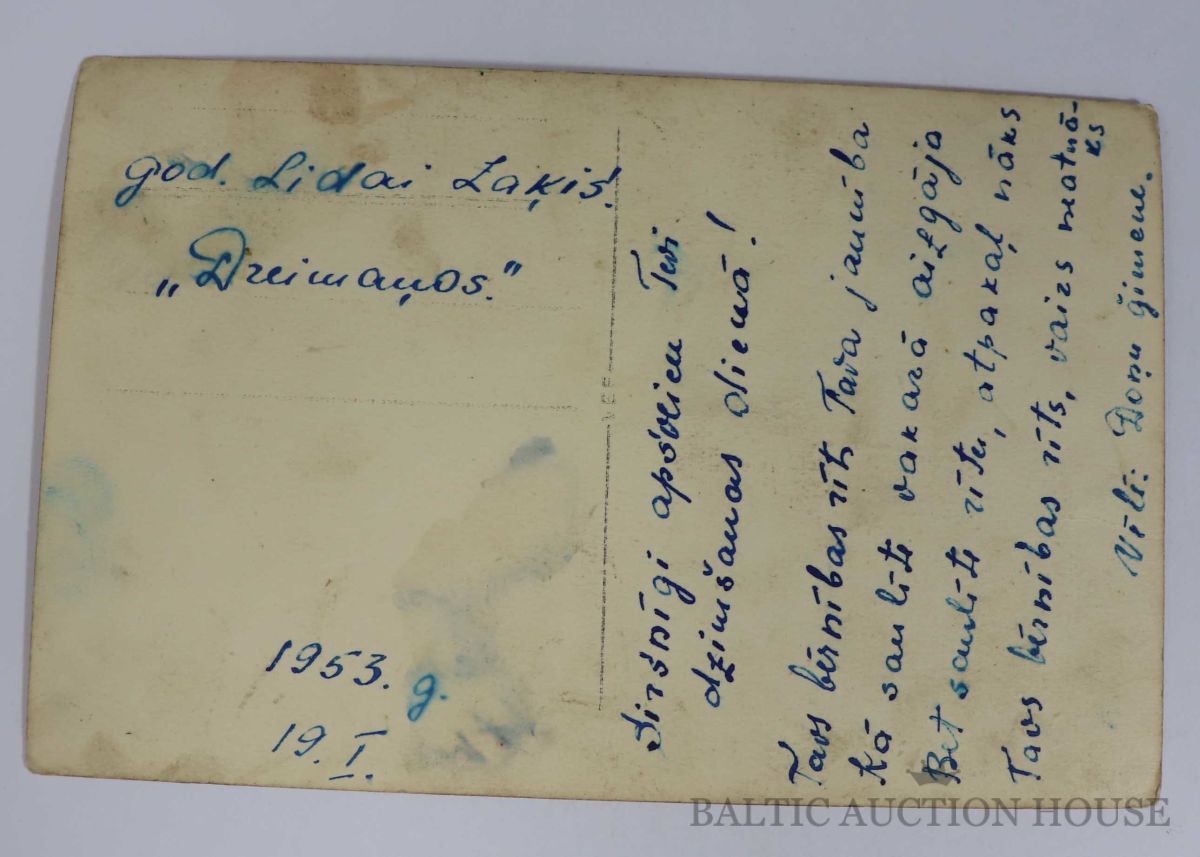 god. Lidai Zaķis.
„Dreimaņos."
1953. g.
19. I.
Sirsnīgi apsveicu Tevi
dzimšanas dienā!
Tavs bērnības rīts Tava jaunība
Kā saulīte vakarā aizgāja
Bet saulīte rītu, atpakaļ nāks
Tavs bērnības rīts, vairs neatnā-
ks
Vēlē: Doņu ģimene.
BALTIC AUCTION HOUSE